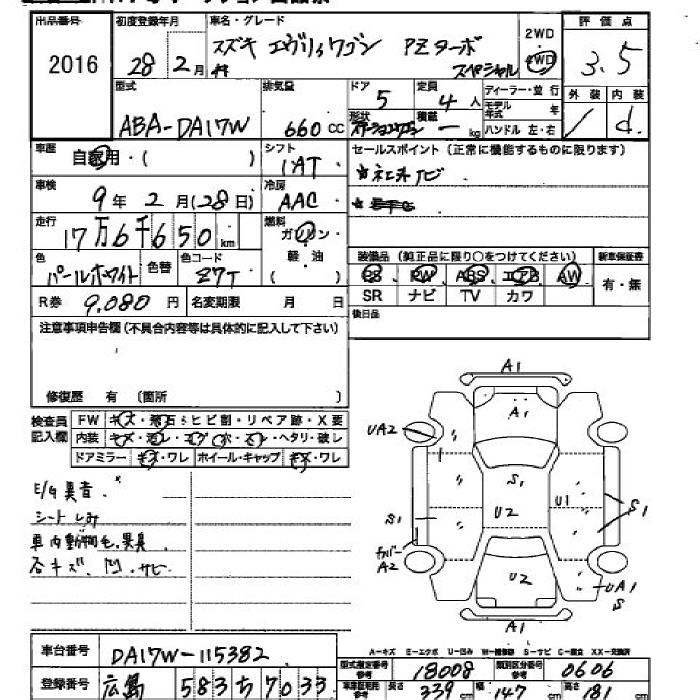 出品番号 初度登録年月 車名・グレード 評価点
2016 28年2月 スズキ エヴリィワゴン PZターボ スペシャル 2WD 4WD 3.5
型式 排気量 ドア 定員 ディーラー・並行 外装 内装
ABA-DA17W 660CC 5 4人 モデル年式 年 / d
形状 ステーションワゴン 積載 — kg ハンドル 左・右
車歴 自家用・( ) シフト セールスポイント(正常に機能するものに限ります)
1AT
車検 9年2月(28日) 冷房 AAC
走行 17万6千650km 燃料 ガソリン・軽油 ( )
装備品(純正品に限り○をつけてください) 新車保証書
色 パールホワイト 色替 色コード Z7T
PS PW ABS エアB AW 有・無
R券 9.080円 名変期限 月 日 SR ナビ TV カワ
後日品
注意事項申告欄(不具合内容等は具体的に記入して下さい)
修復歴 有 (箇所 )
検査員記入欄 FW キズ・飛石・ヒビ割・リペア跡・X要
内装 キズ・汚レ・コゲ・穴・スレ・ヘタリ・破レ
ドアミラー キズ・ワレ ホイール・キャップ キズ・ワレ
E/G異音
シートしみ
車内動物毛、異臭
石キズ、凹、サビ
A1
A1
UA2
S1
U1
S1
U2
S1
A2
U2
UA1
S
A1
A-キズ E-エクボ U-凹み W-補修跡 S-サビ C-腐食 XX-交換済
車台番号 DA17W-115382
型式指定番号 参考 18008 類別区分番号 参考 0606
登録番号 広島 583 ち 7033
長さ 339cm 幅 147cm 高さ 181cm